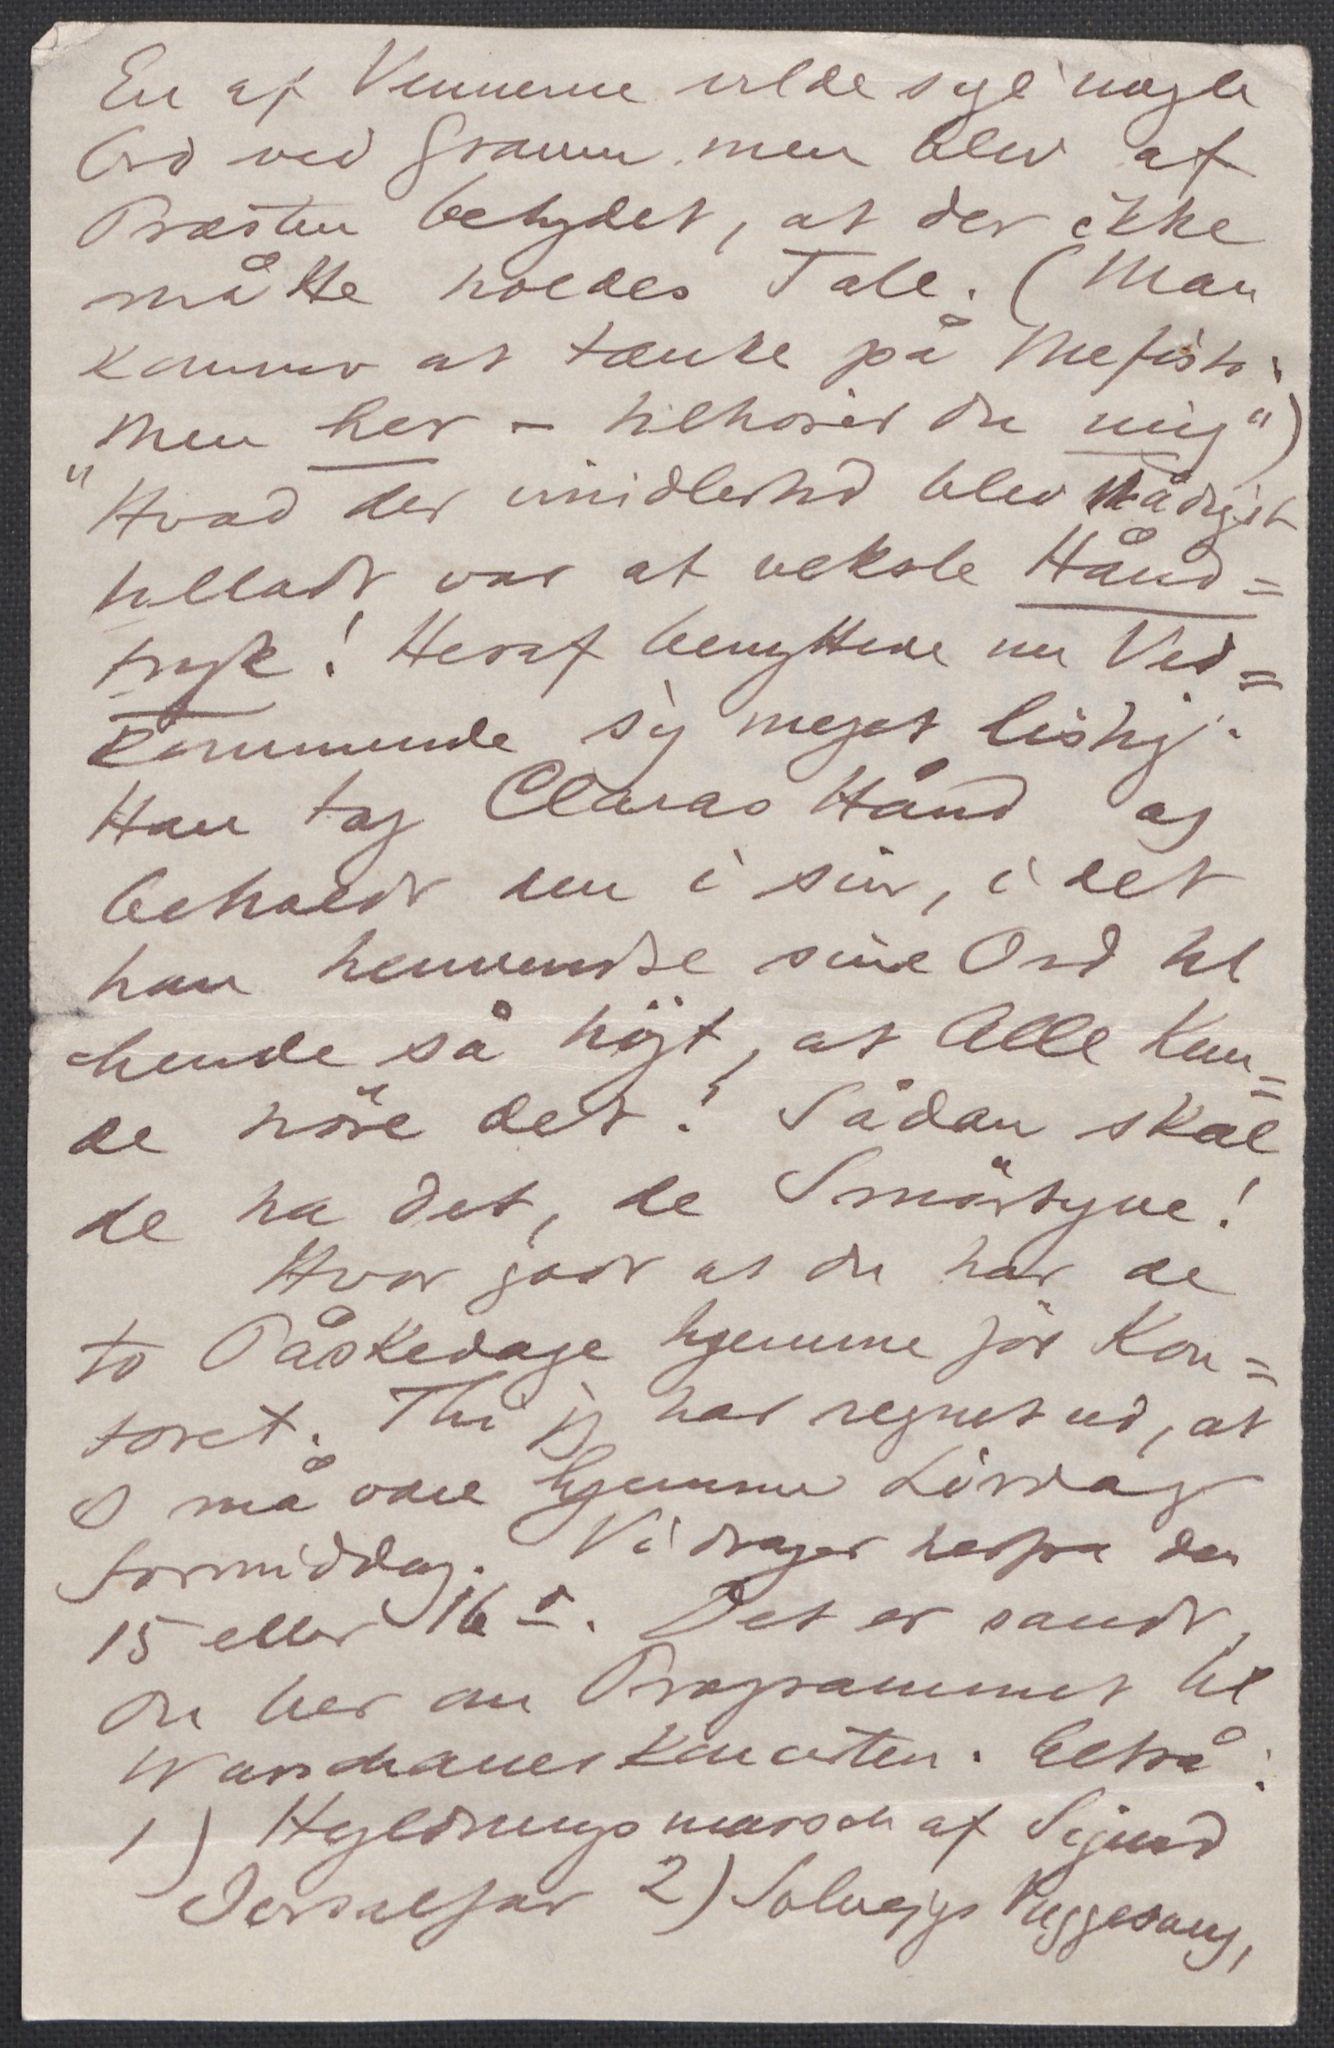 En af Vennerne vilde sige nogle
Ord ved Graven men blev af
Præsten betydet, at der ikke
måtte holdes Tale. (Man
kommer at tænke på Mefisto:
"Men her – tilhører du mig")
Hvad der imidlertid blev nådigst
tilladt var at veksle Hånd=
tryk! Heraf benyttede nu Ved=
kommende sig meget listig.
Han tog Claras Hånd og
beholdt den i sin, i det
han henvendte sine Ord til
hende så højt, at Alle kun=
de höre det! Sådan skal
de ha det, de Smörtyve!
Hvor godt at du har de
to Påskedage hjemme för Kon=
toret. Thi jeg har regnet ud, at
I må være hjemme Lördag
Formiddag. Vi drager herfra den
15 eller 16de. Det er sandt,
Du ber om Programmet til
Warschauerkoncerten. Altså:
1) Hyldningsmarsch af Sigurd
Jorsalfar 2) Solvejgs Vuggesang,